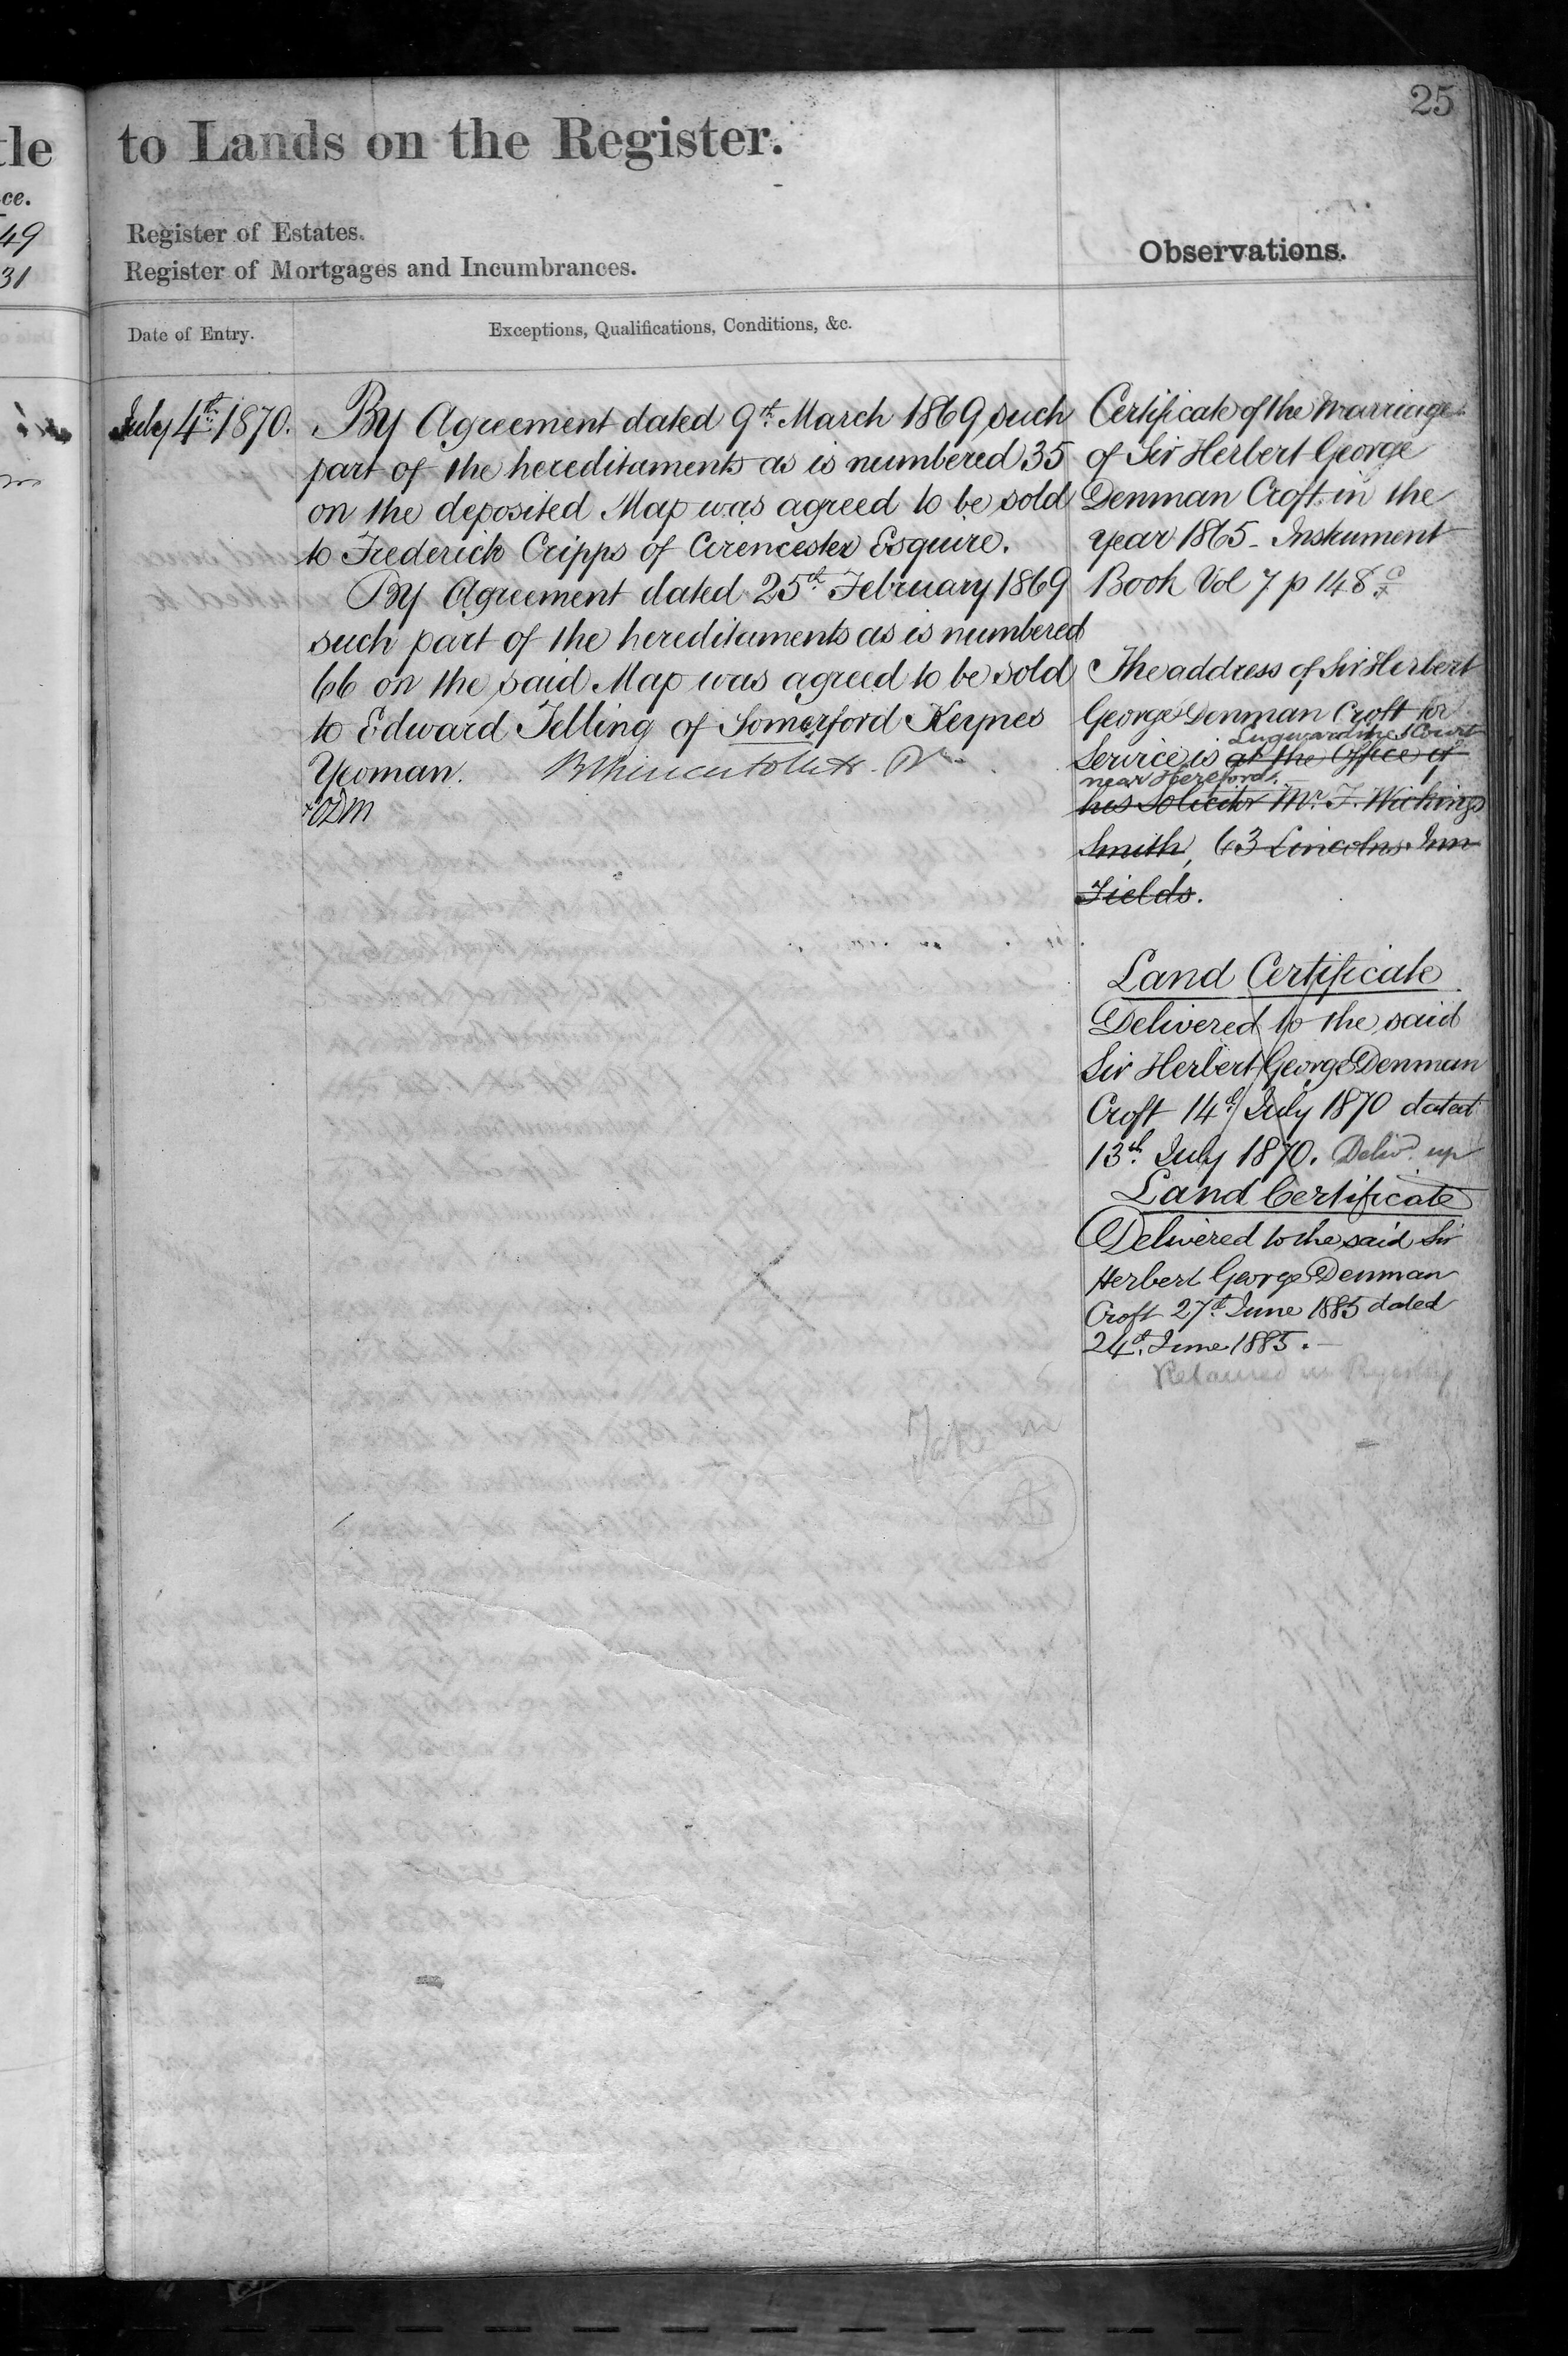 25
tle
to Lands on the Register.
ce.
49
31
Register of Estates.
Register of Mortgages and Incumbrances.
Observations.
Date of Entry.
Exceptions, Qualifications, Conditions, &c.
July 4th 1870.
By Agreement dated 9th March 1869 such
part of the hereditaments as is numbered 35
on the deposited Map was agreed to be sold
to Frederick Cripps of Cirencester Esquire.
By Agreement dated 25th February 1869
such part of the hereditaments as is numbered
66 on the said Map was agreed to be sold
to Edward Telling of Somerford Keynes
Yeoman.
Certificate of the Marriage
of Sir Herbert George
Denman Croft in the
year 1865 - Instrument
Book Vol 7 p 148
The address of Sir Herbert
George Denman Croft for
Lugwardine Court
Service is at the Office of
near Hereford.
his Solicitor Mr. F. Wickings
Smith, 63 Lincolns Inn
Fields.
Land Certificate
Delivered to the said
Sir Herbert George Denman
Croft 14th July 1870 dated
13th July 1870. Delivd. up
Land Certificate
Delivered to the said Sir
Herbert George Denman
Croft 27th June 1885 dated
24th June 1885.
Retained in Registry